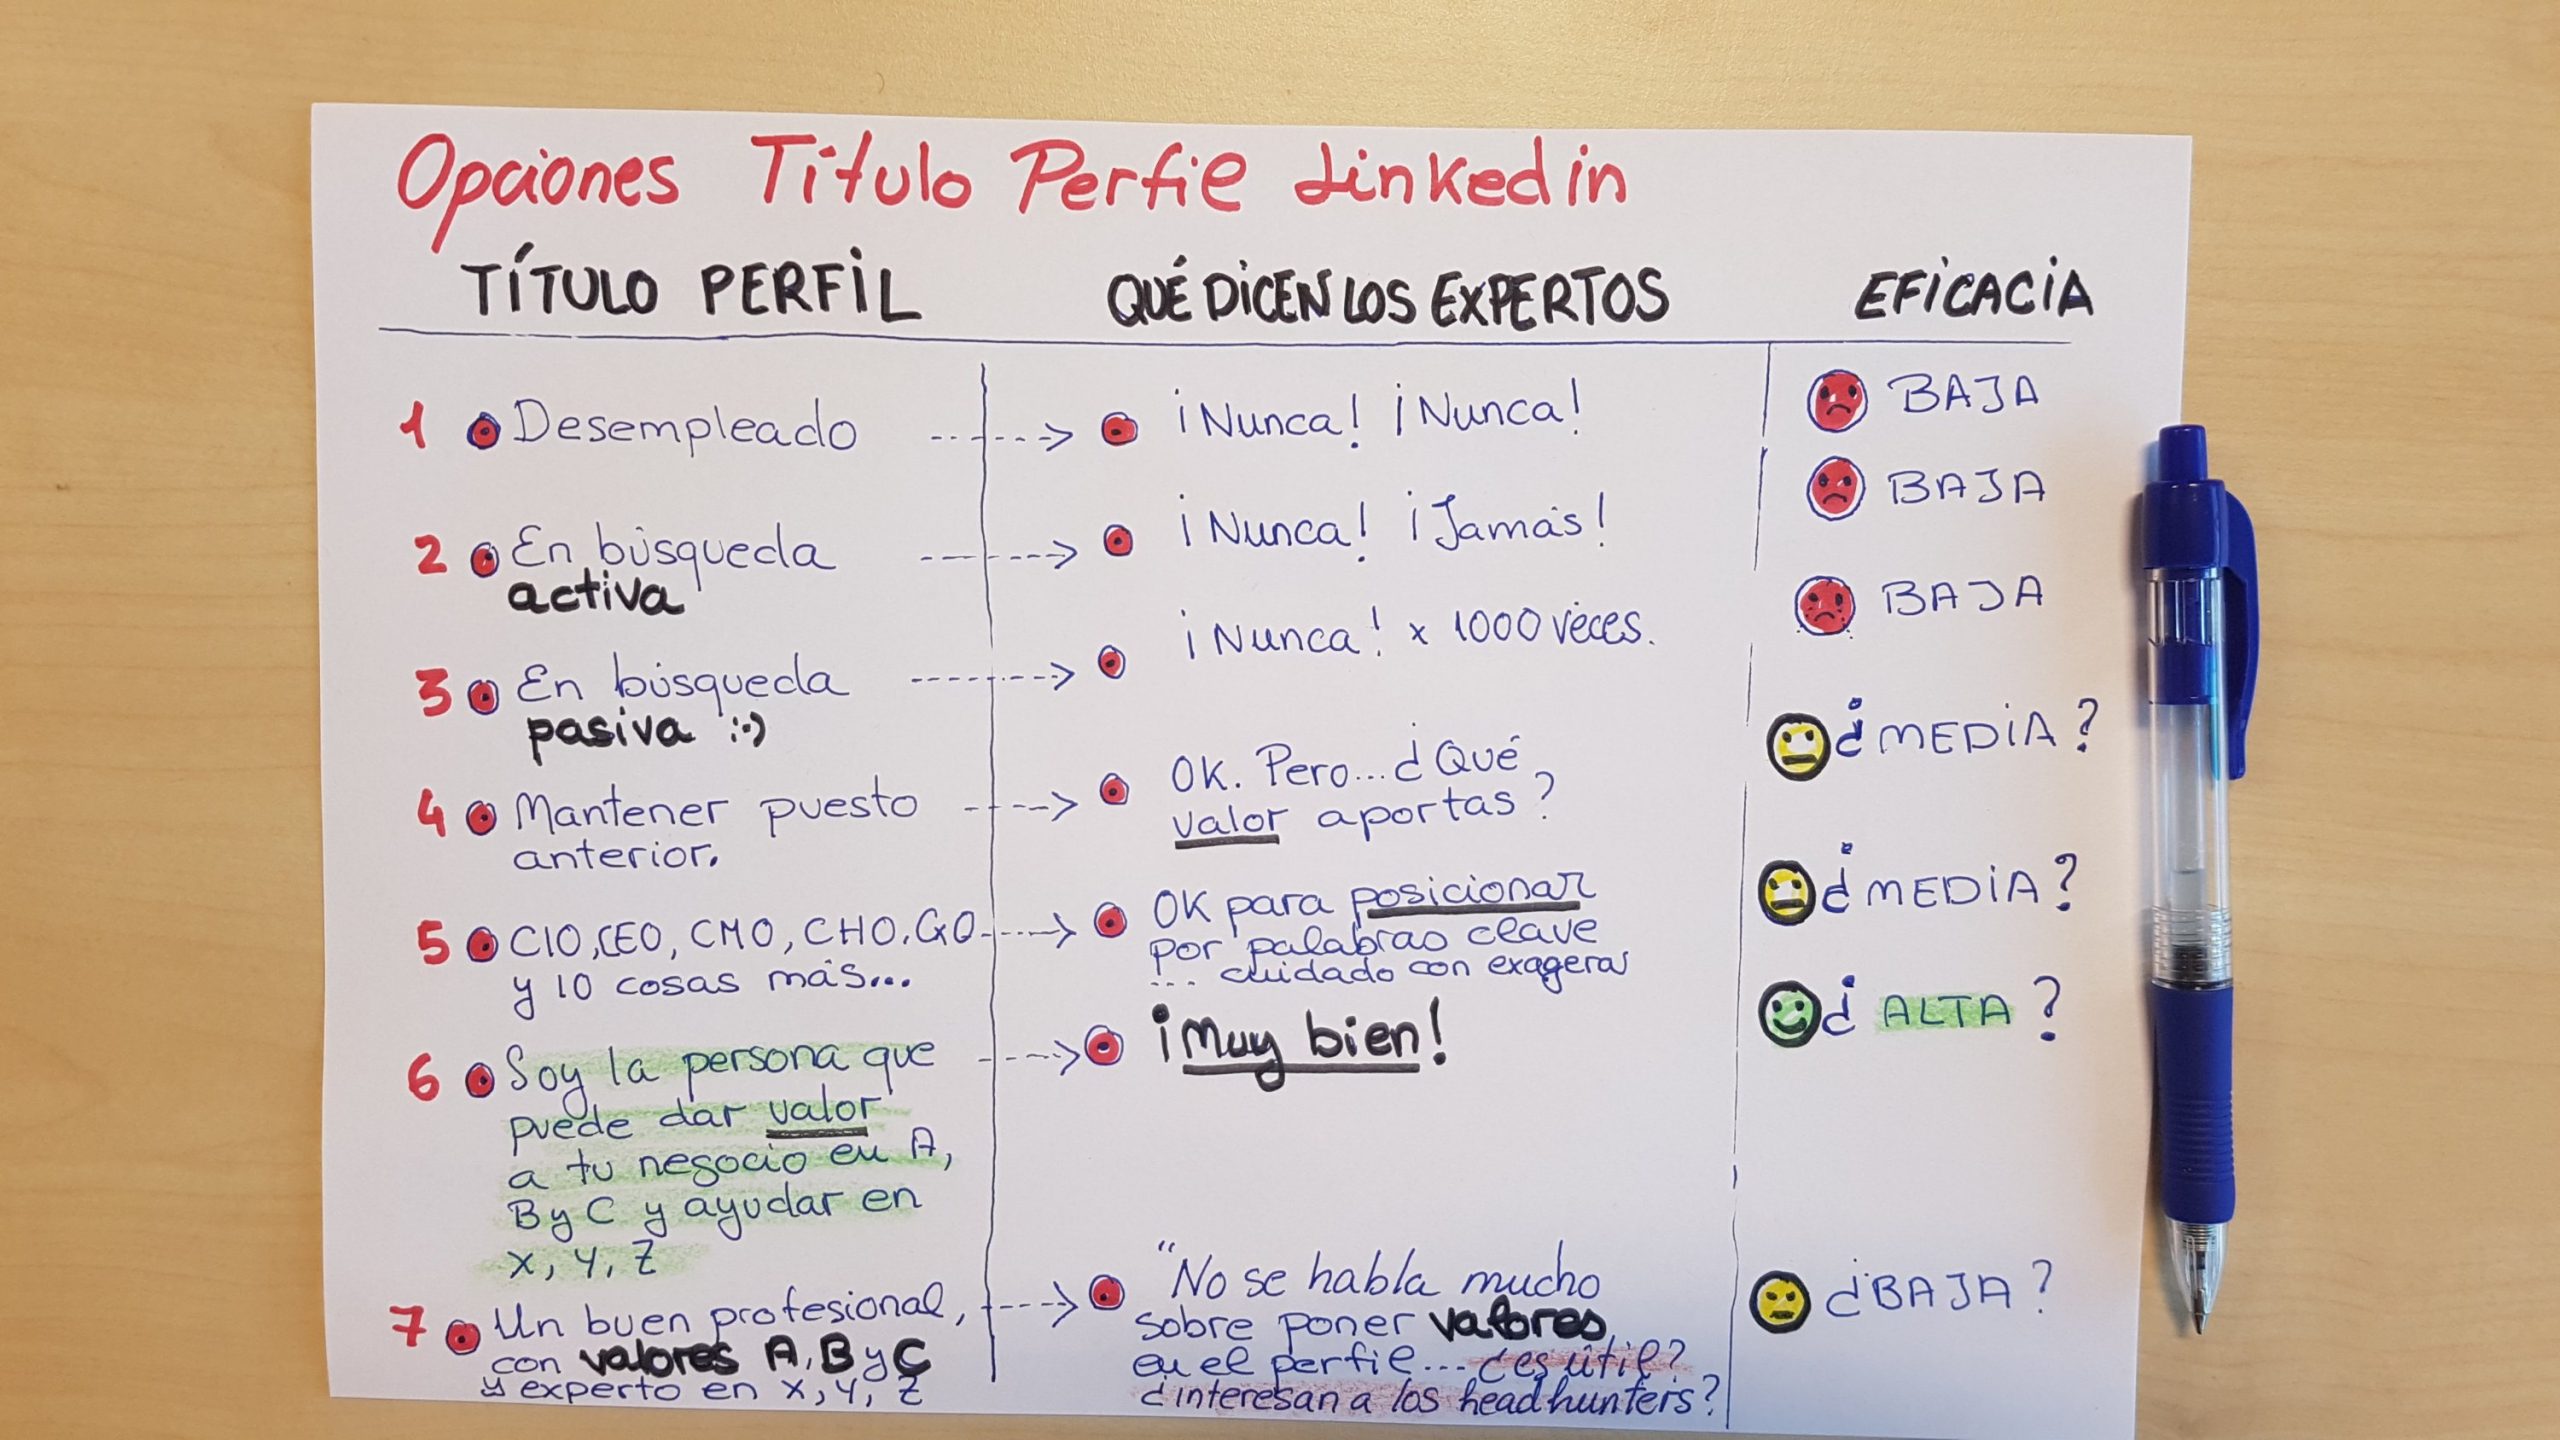 Opciones Título Perfil Linkedin
TÍTULO PERFIL
QUÉ DICEN LOS EXPERTOS
EFICACIA
1 Desempleado
¡Nunca! ¡Nunca!
BAJA
2 En búsqueda
activa
¡Nunca! ¡Jamás!
BAJA
3 En búsqueda
pasiva :-)
¡Nunca! x 1000 veces.
BAJA
4 Mantener puesto
anterior.
OK. Pero... ¿Qué
valor aportas?
¿MEDIA?
5 CIO, CEO, CMO, CHO,
y 10 cosas más...
OK para posicionar
por palabras clave
... cuidado con exagerar
¿MEDIA?
6 Soy la persona que
puede dar valor
a tu negocio en A,
B y C y ayudar en
X, Y, Z
¡Muy bien!
¿ALTA?
7 Un buen profesional,
con valores A, B y C
y experto en X, Y, Z
"No se habla mucho
sobre poner valores
en el perfil... ¿es útil?
¿interesan a los headhunters?
¿BAJA?